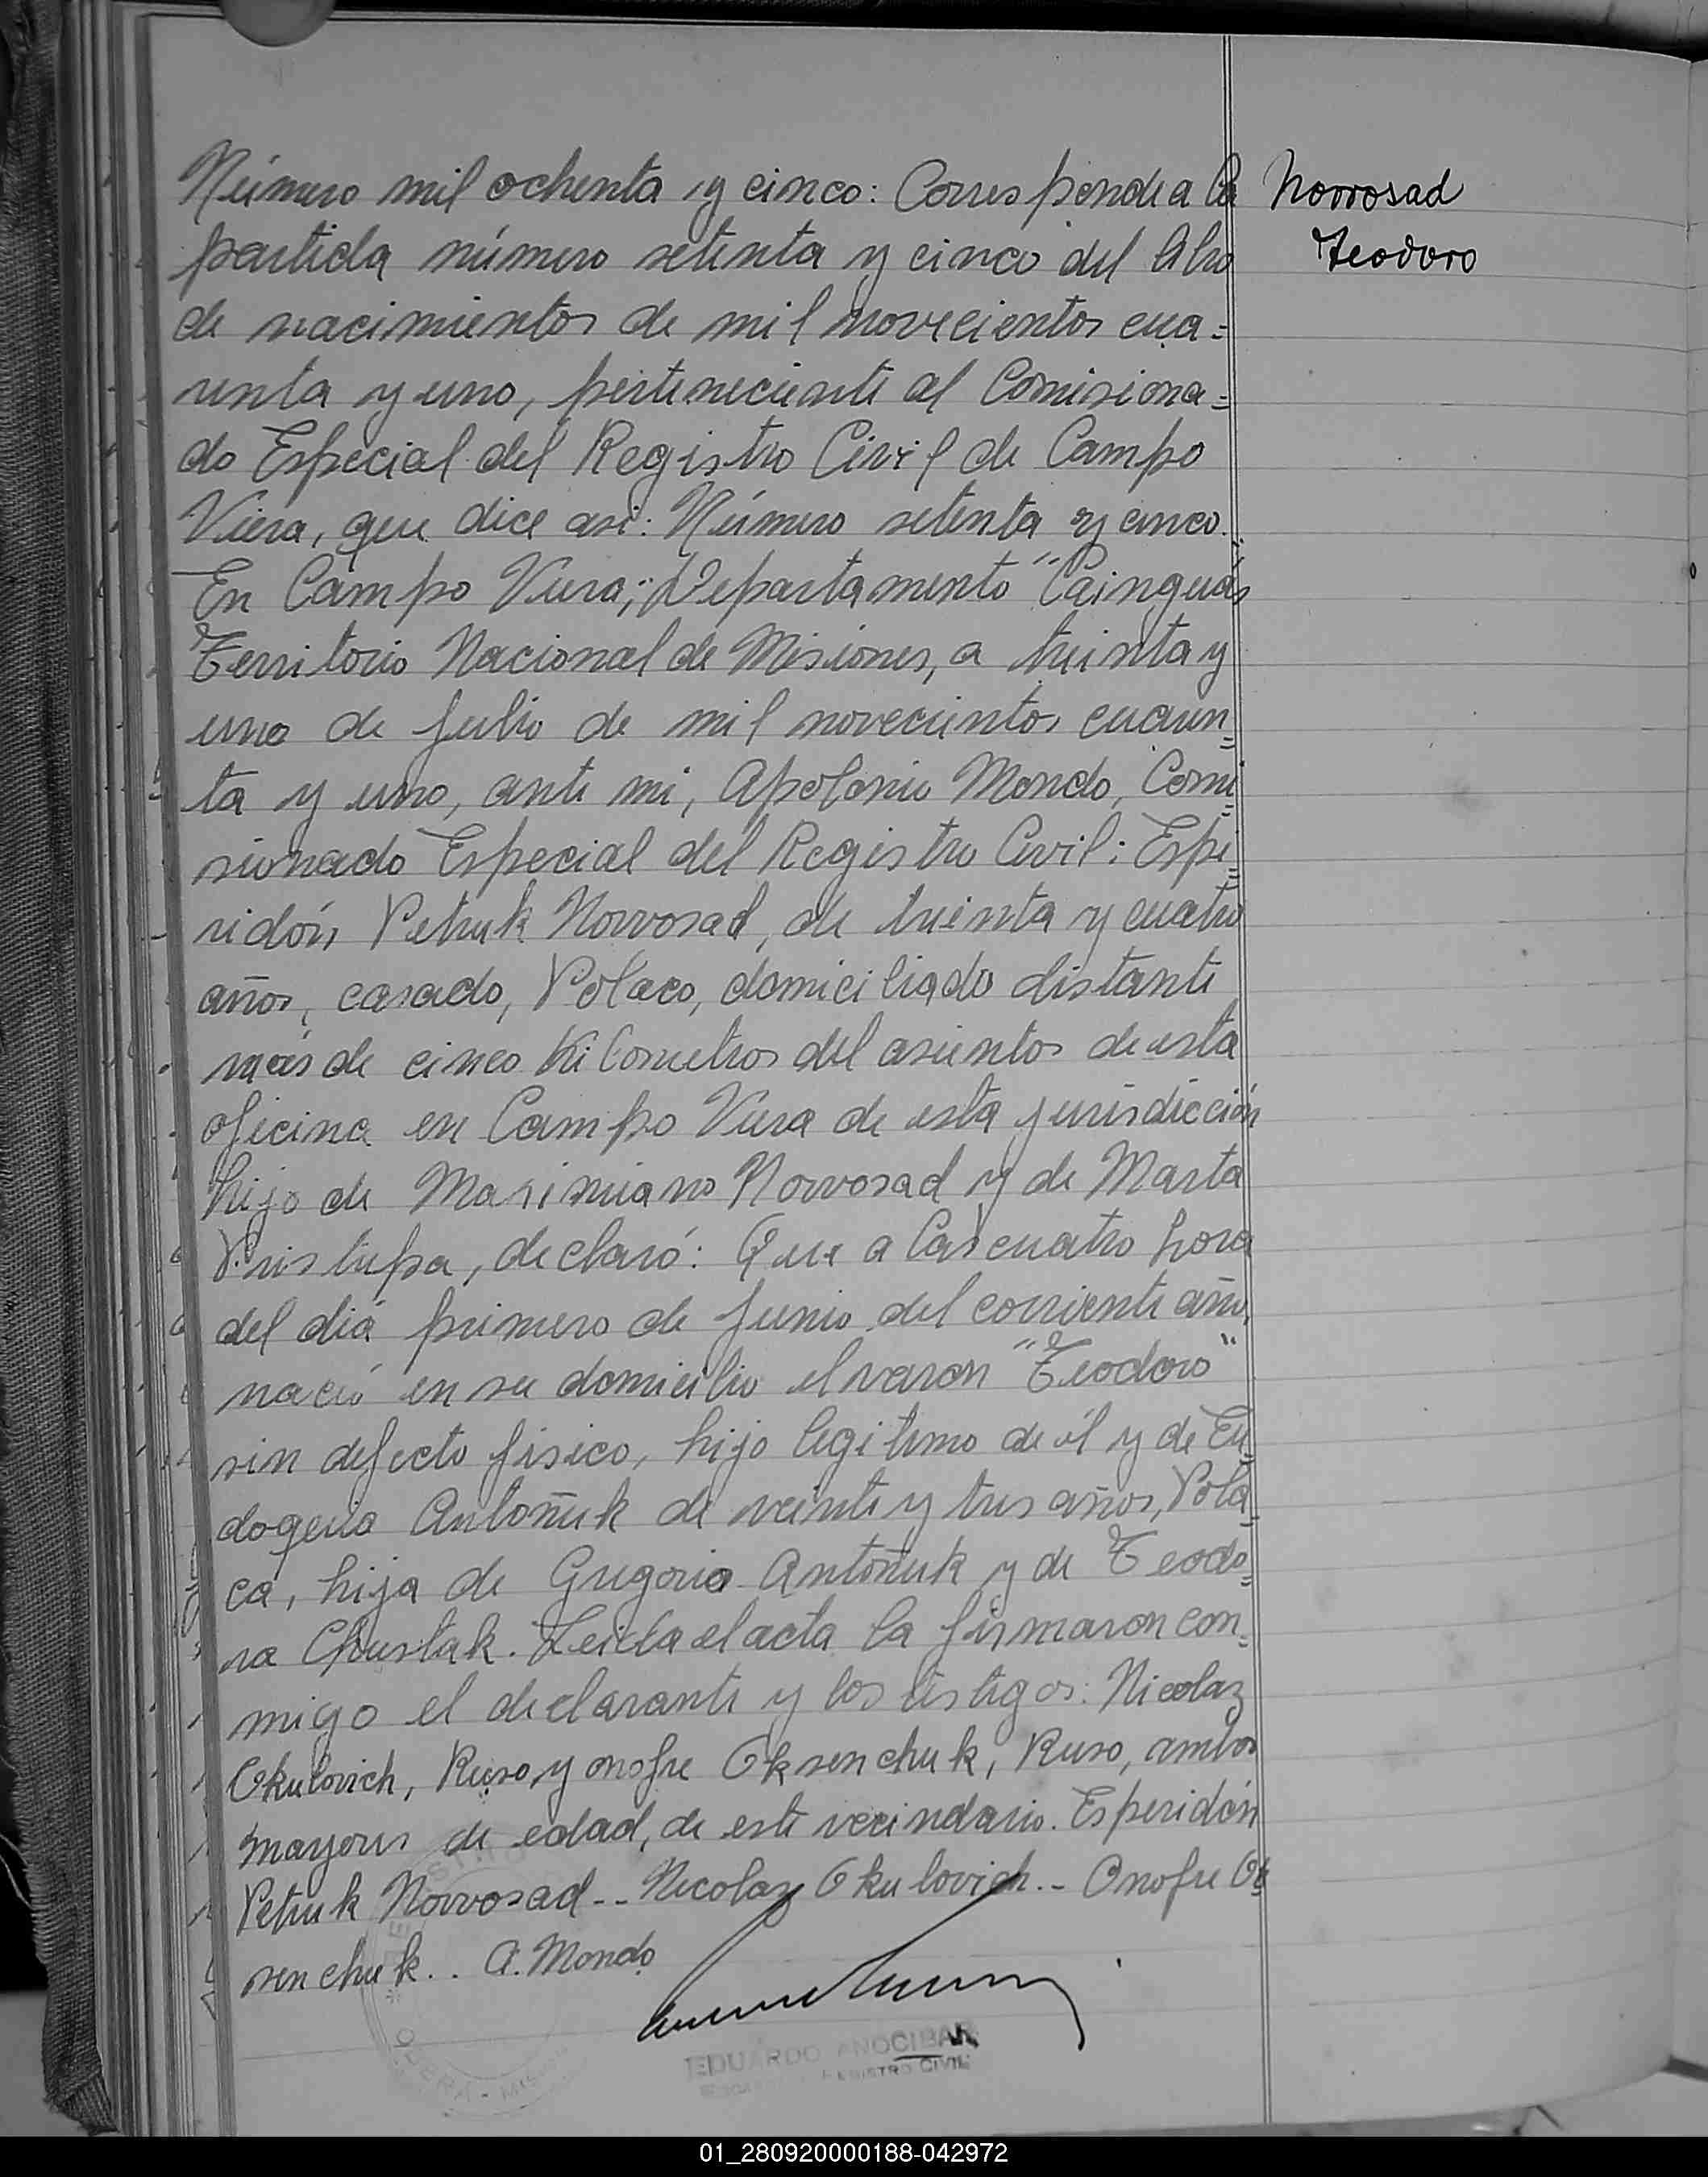 Número mil ochenta y cinco: Corresponde a la
Novosad
Teodoro
partida número setenta y cinco del libro
de nacimientos de mil novecientos cua=
renta y uno, perteneciente al Comisiona=
do Especial del Registro Civil de Campo
Viera, que dice asi: Número setenta y cinco.
En Campo Viera; Departamento "Cainguás
Territorio Nacional de Misiones, a treinta y
uno de Julio de mil novecientos cuaren=
ta y uno, ante mi, Apolonio Mondo, Comi=
sionado Especial del Registro Civil: Espe=
ridón Petruk Novosad, de treinta y cuatro
años, casado, Polaco, domiciliado distante
más de cinco Kilometros del asientos de esta
oficina en Campo Viera de esta jurisdicción
hijo de Maximiano Novosad y de Marta
Pristupa, declaró: Que a las cuatro hora
del diá primero de Junio del corriente año,
nació en su domicilio el varon "Teodoro"
sin defecto fisico, hijo legitimo de él y de Eu=
doquia Antoñuk de veinte y tres años, Pola=
ca, hija de Gregorio Antoñuk y de Teodo=
ra Chustak. Leida el acta la firmaron con=
migo el declarante y los testigos: Nicolaz
Okulovich, Ruso y onofre Oksenchuk, Ruso, ambos
mayores de edad, de este vecindario. Esperidón
Petruk Novosad -- Nicolaz Okulovich.- Onofre Ok
senchuk.. A. Mondo
EDUARDO ANOCIBAR
REGISTRO CIVIL
01_280920000188-042972